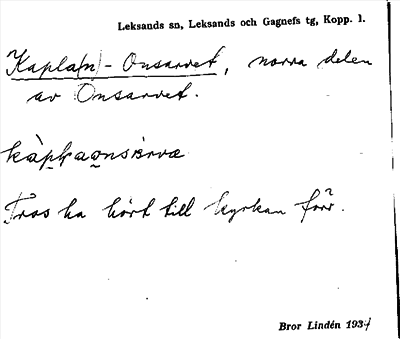 Leksands sn, Leksands och Gagnefs tg, Kopp. l.
Kapla(n)- Onsarvet, norra delen
av Onsarvet.
Tros ha hört till kyrkan förr.
Bror Lindén 1934